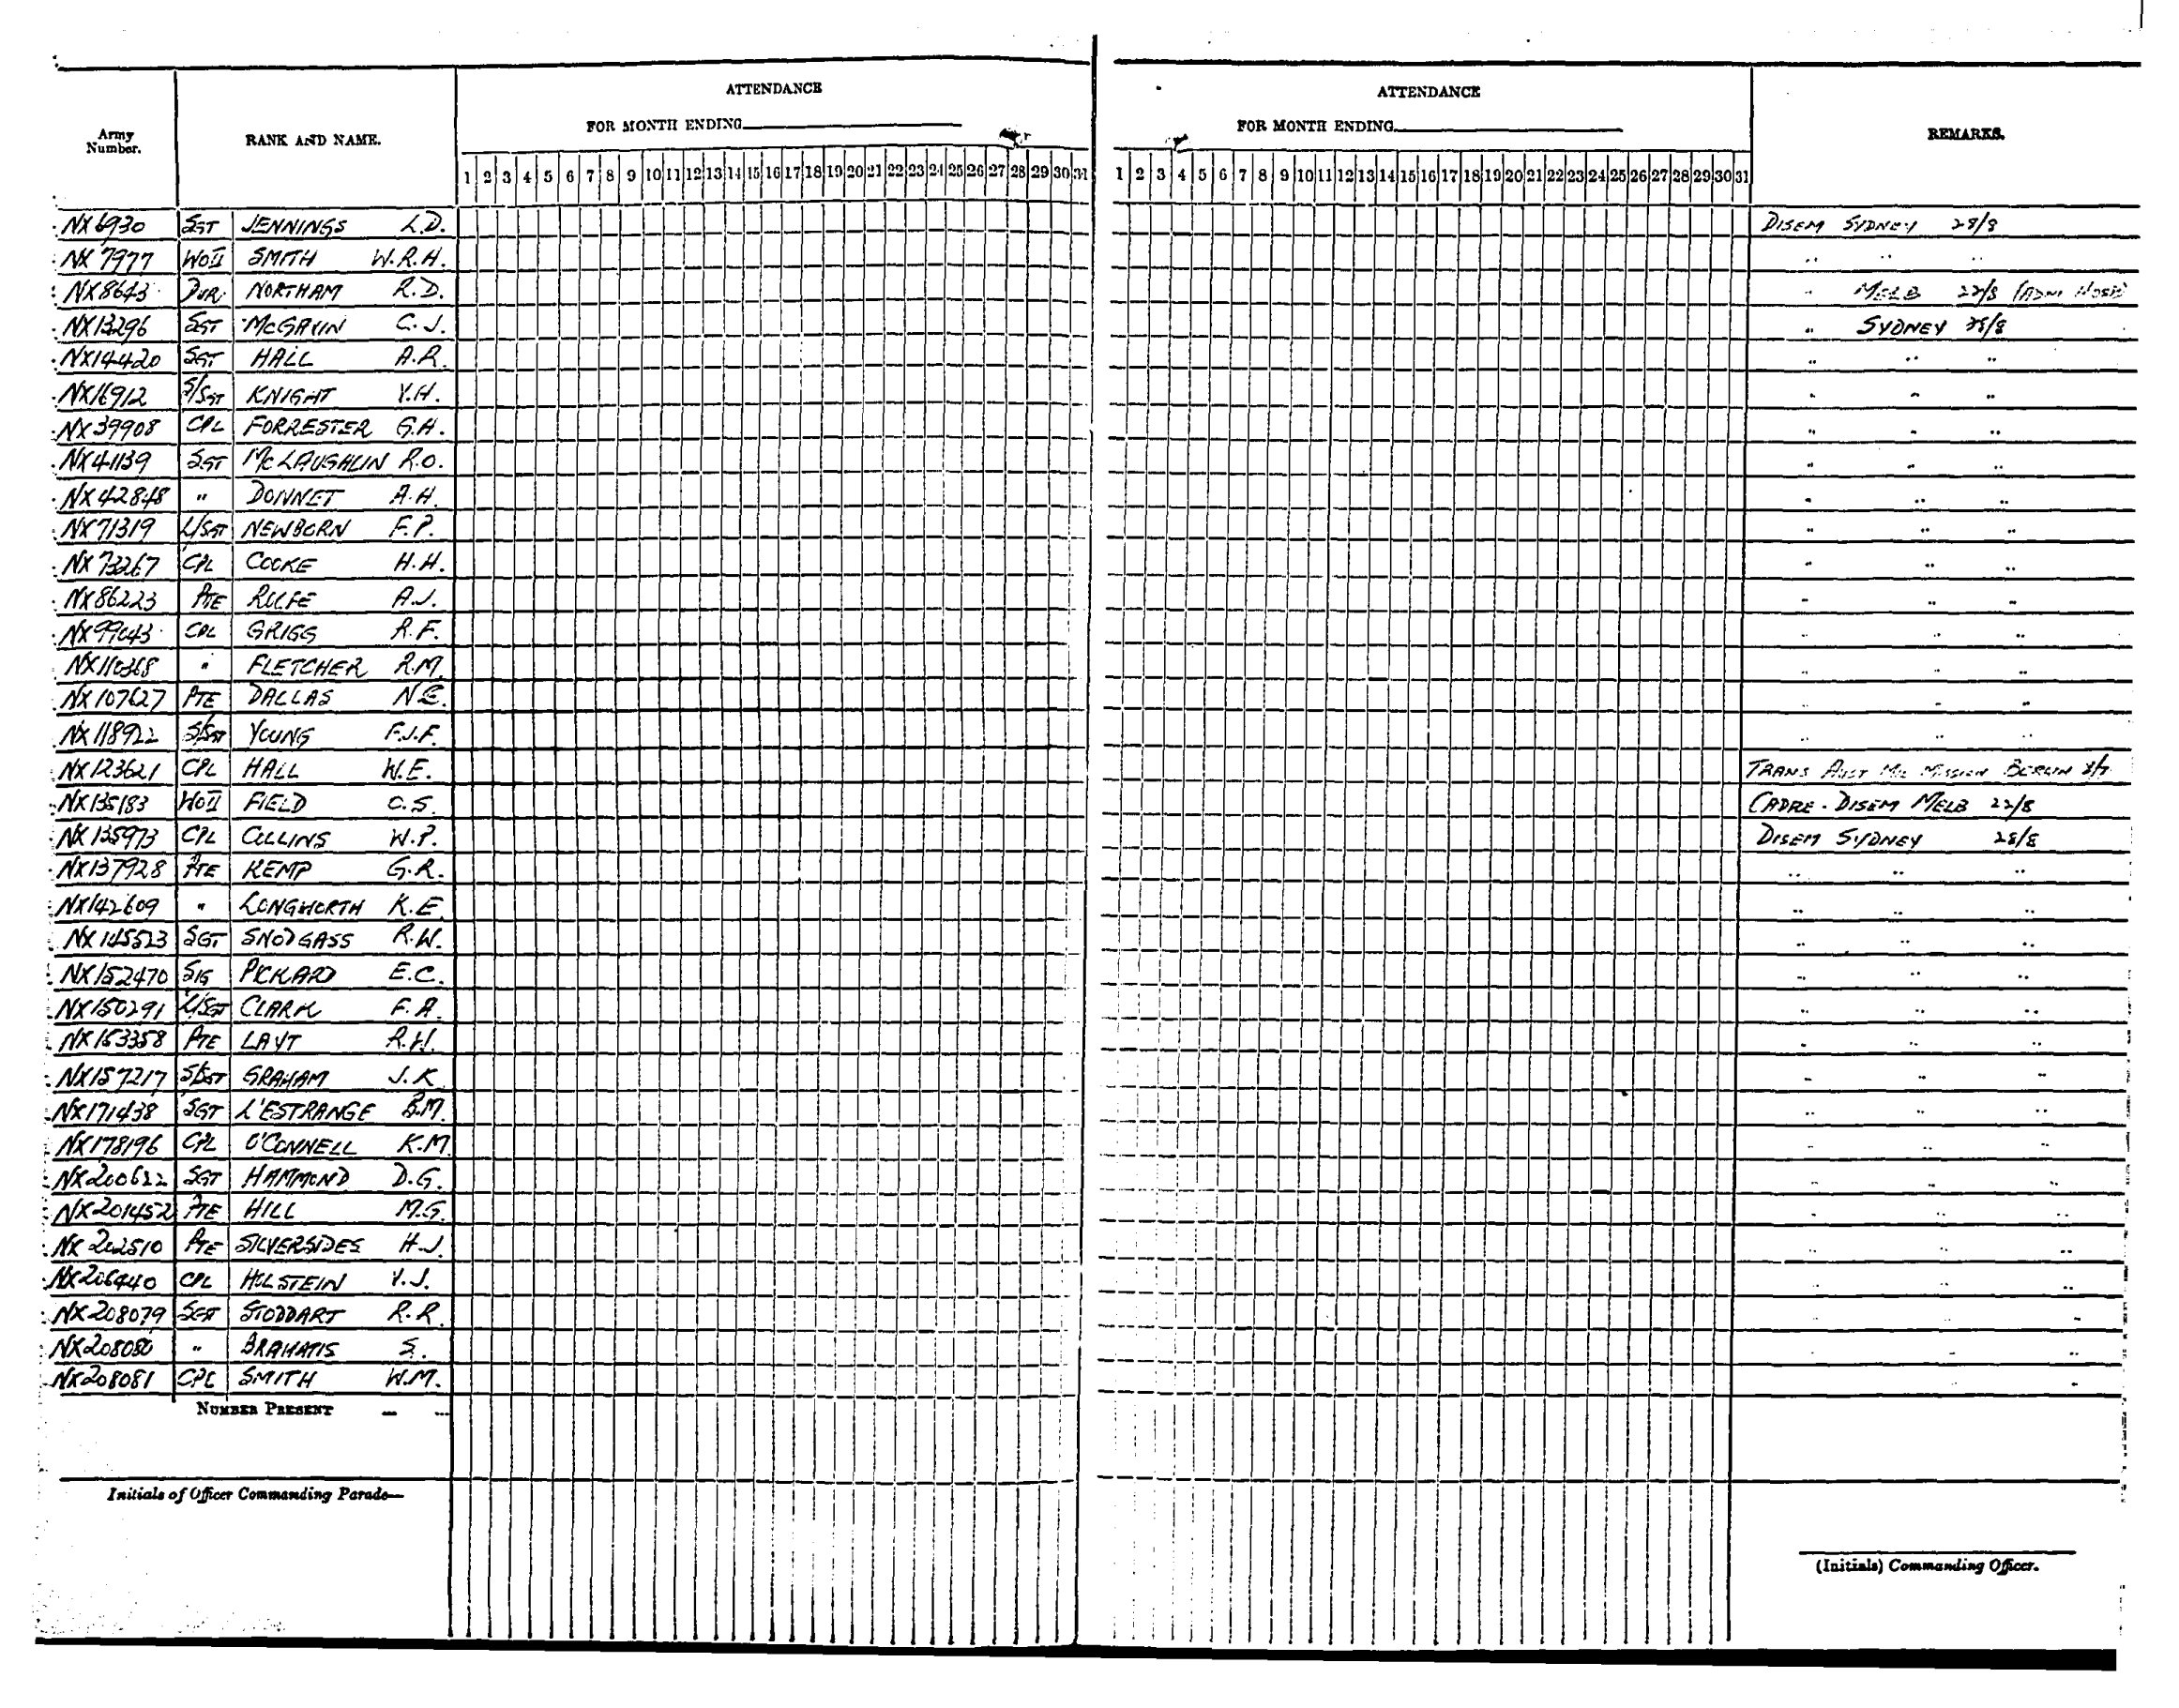 ATTENDANCE ATTENDANCE
FOR MONTH ENDING FOR MONTH ENDING
Army Number. RANK AND NAME. REMARKS.
1 2 3 4 5 6 7 8 9 10 11 12 13 14 15 16 17 18 19 20 21 22 23 24 25 26 27 28 29 30 31 1 2 3 4 5 6 7 8 9 10 11 12 13 14 15 16 17 18 19 20 21 22 23 24 25 26 27 28 29 30 31
NX6930 SGT JENNINGS L.D. DISEM SYDNEY 28/8
NX7977 WOII SMITH W.R.H. " " "
NX8643 DVR NORTHAM R.D. " MELB 22/8
NX13296 SGT McGAVIN C.J. " SYDNEY 28/8
NX14420 SGT HALL A.R. " " "
NX16912 S/SGT KNIGHT V.H. " " "
NX39908 CPL FORRESTER G.H. " " "
NX41139 SGT McLAUGHLIN R.O. " " "
NX42848 " DONNET A.H. " " "
NX71319 L/SGT NEWBORN F.P. " " "
NX73267 CPL COOKE H.H. " " "
NX86223 PTE ROLFE A.J. " " "
NX99043 CPL GRIGG R.F. " " "
NX110368 " FLETCHER R.M. " " "
NX107627 PTE DALLAS N.E. " " "
NX118922 S/SGT YOUNG F.J.F. " " "
NX123621 CPL HALL W.E. TRANS AUST MIL MISSION BERLIN
NX135183 WOII FIELD O.S. CADRE - DISEM MELB 22/8
NX135973 CPL COLLINS W.P. DISEM SYDNEY 28/8
NX137928 PTE KEMP G.R. " " "
NX142609 " LONGWORTH K.E. " " "
NX145523 SGT SNODGASS R.W. " " "
NX152470 SIG PICKARD E.C. " " "
NX150291 L/SGT CLARK F.A. " " "
NX153358 PTE LAYT R.H. " " "
NX157217 S/SGT GRAHAM J.K. " " "
NX171438 SGT L'ESTRANGE B.M. " " "
NX178196 CPL O'CONNELL K.M. " " "
NX200622 SGT HAMMOND D.G. " " "
NX201452 PTE HILL M.G. " " "
NX202510 PTE SILVERSIDES H.J. " " "
NX206440 CPL HOLSTEIN V.J. " " "
NX208079 SGT STODDART R.R. " " "
NX208080 " BRAHATIS S. " " "
NX208081 CPL SMITH W.M. " "
NUMBER PRESENT — —
Initials of Officer Commanding Parade—
(Initials) Commanding Officer.